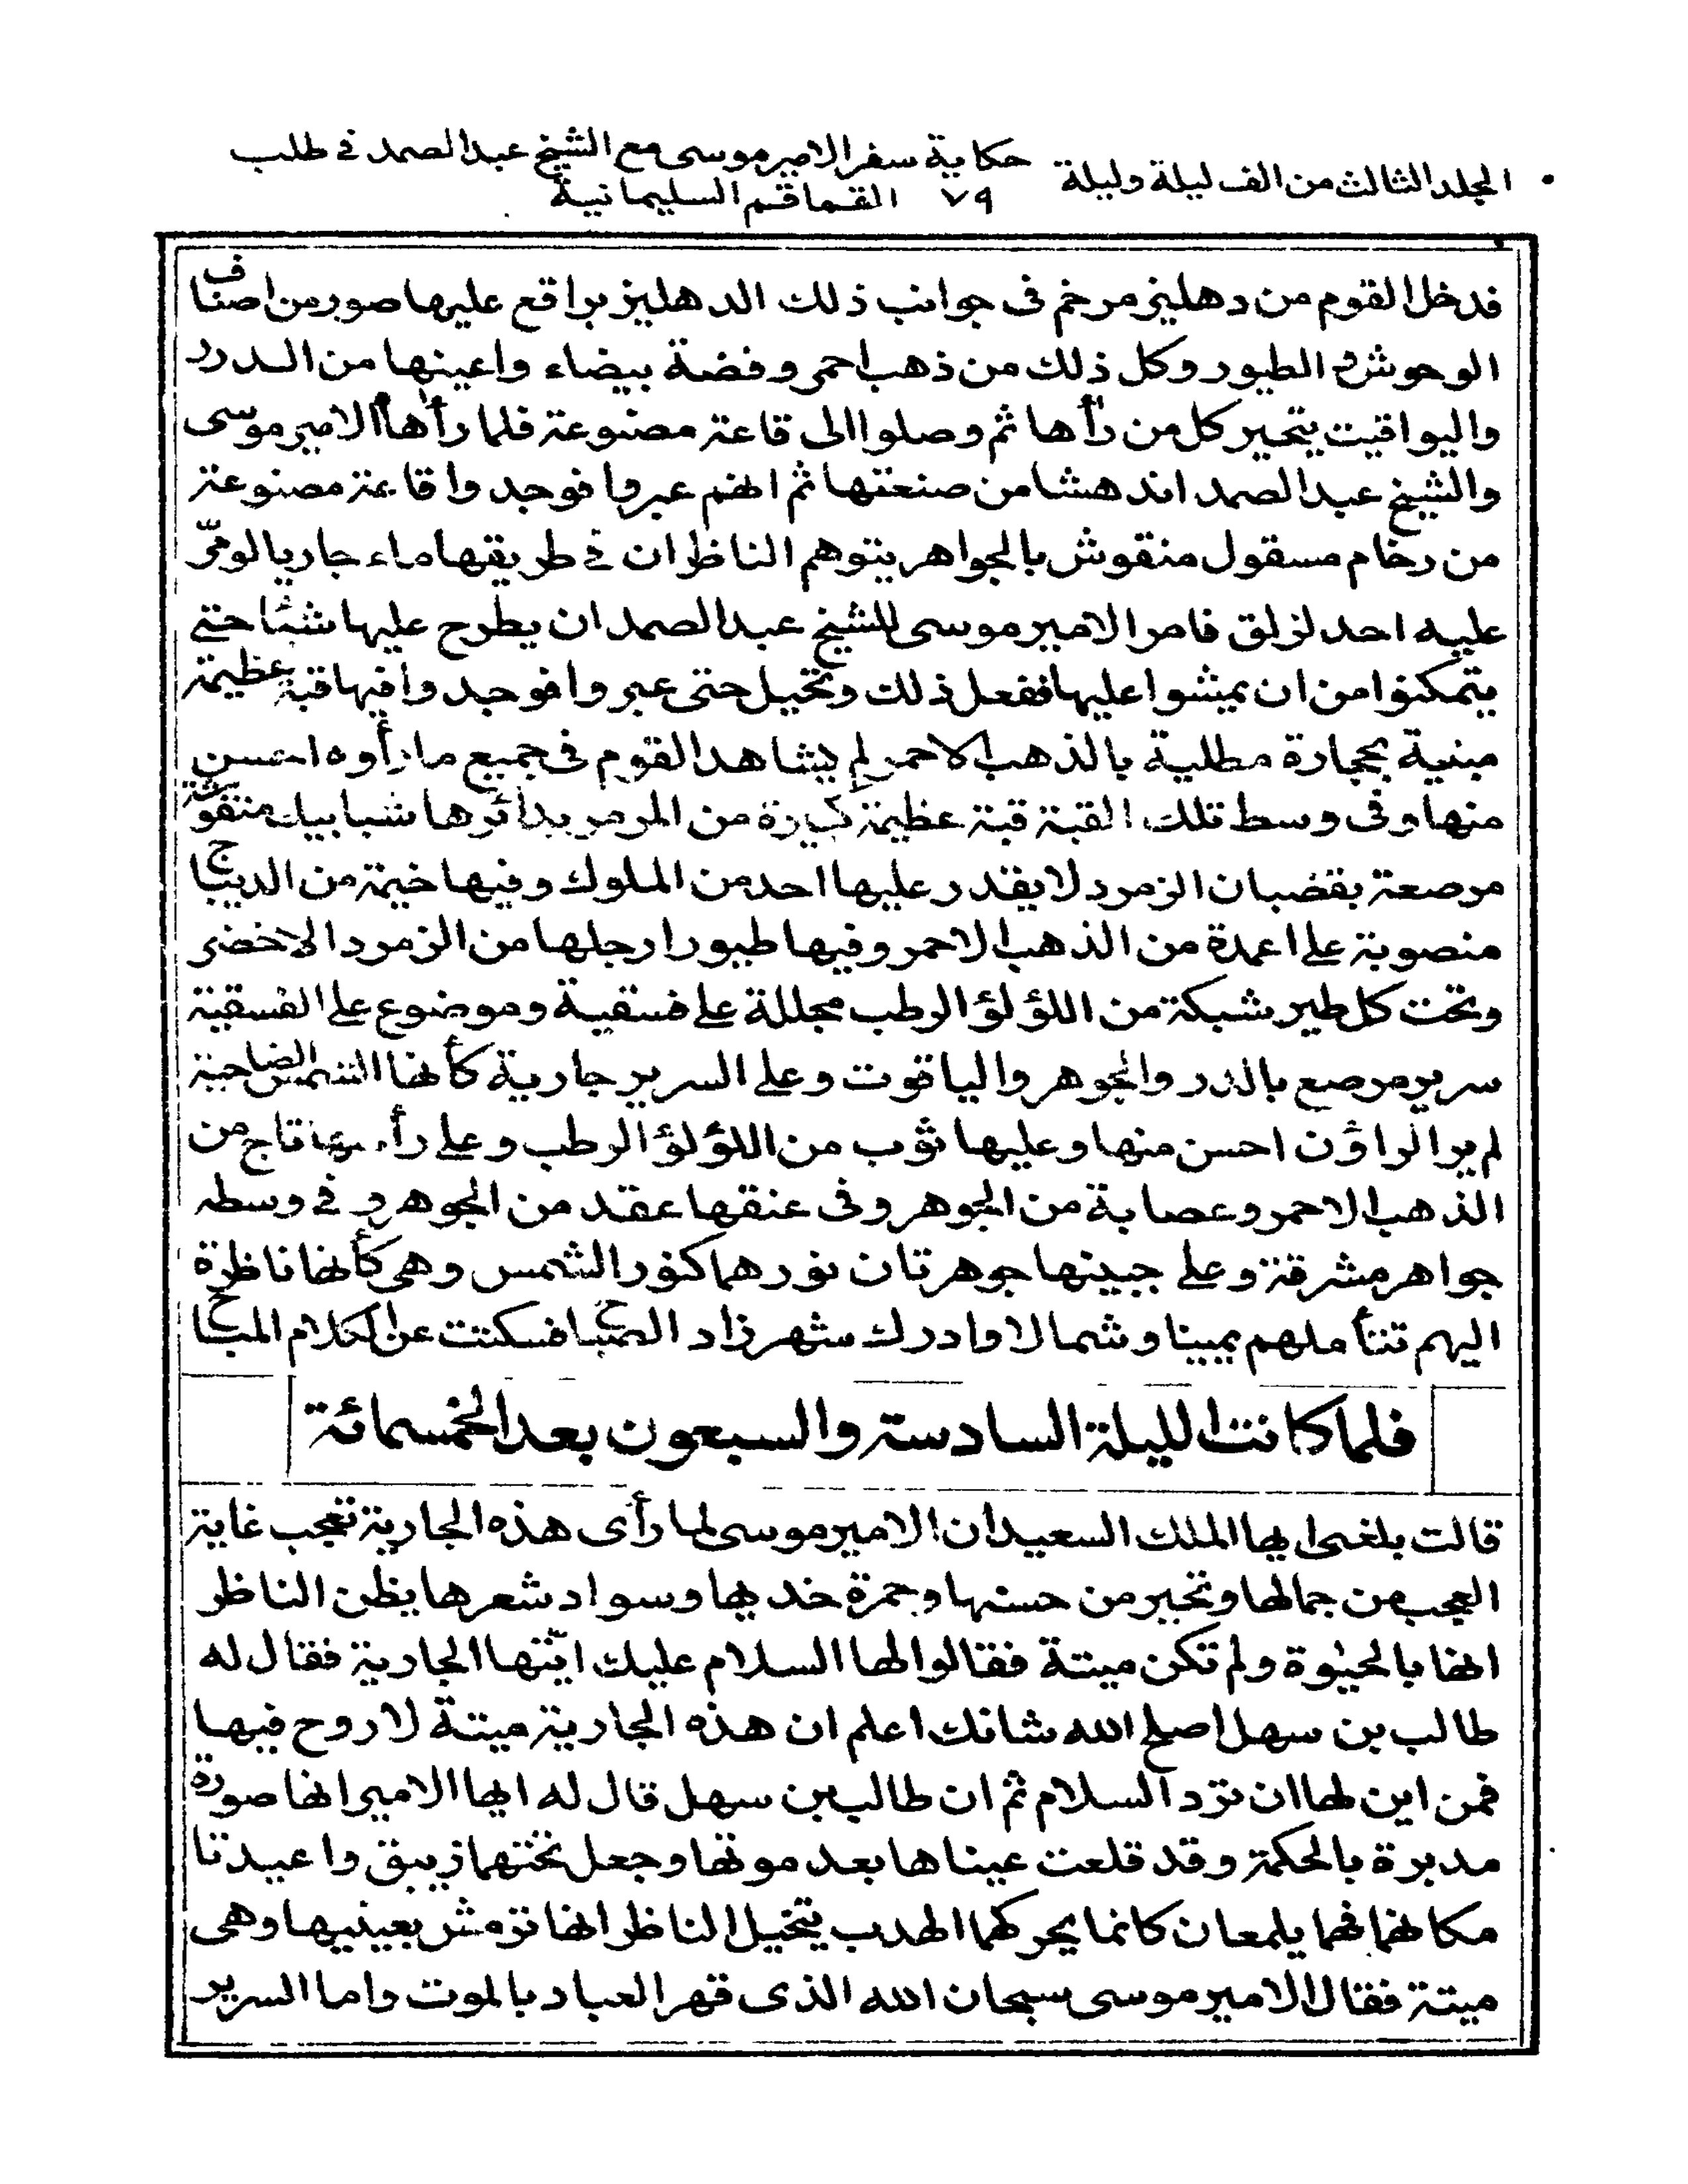 المجلد الثالث من الف ليلة وليلة حكاية سفر الامير موسى مع الشيخ عبد الصمد فى طلب
٧٩ القماقم السليمانية
فدخل القوم من دهليز مرخم فى جوانب ذلك الدهليز براقع عليها صور من اصناف
الوحوش و الطيور وكل ذلك من ذهب احمر و فضة بيضاء واعينها من الدرر
واليواقيت يتحير كل من رأها ثم وصلوا الى قاعة مصنوعة فلما رأها الامير موسى
والشيخ عبد الصمد اندهشا من صنعتها ثم انهم عبروا فوجدوا قاعة مصنوعة
من رخام مسقول منقوش بالجواهر يتوهم الناظر ان فى طريقها ماء جاريا لو مرّ
عليه احد لزلق فامر الامير موسى للشيخ عبد الصمد ان يطرح عليها شئا حتى
يتمكنوا من ان يمشوا عليها ففعل ذلك وتحيل حتى عبروا فوجدوا فيها قبة عظيمة
مبنية بحجارة مطلية بالذهب الاحمر لم يشاهد القوم فى جميع ما رأوه احسن
منها وفى وسط تلك القبة قبة عظيمة كبيرة من المرمر بدائرها شبابيك منقوشة
مرصعة بقضبان الزمرد لا يقدر عليها احد من الملوك وفيها خيمة من الديباج
منصوبة على اعمدة من الذهب الاحمر وفيها طيور ارجلها من الزمرد الاخضر
وتحت كل طير شبكة من اللؤلؤ الرطب مجللة على فسقية وموضوع على الفسقية
سرير مرصع بالدرر والجوهر والياقوت وعلى السرير جارية كأنها الشمس الضاحية
لم ير الراؤن احسن منها وعليها ثوب من اللؤلؤ الرطب وعلى رأسها تاج من
الذهب الاحمر وعصابة من الجوهر وفى عنقها عقد من الجوهر و فى وسطه
جواهر مشرقة وعلى جبينها جوهرتان نورهما كنور الشمس وهى كأنها ناظرة
اليهم تتأملهم يمينا وشمالا وادرك شهرزاد الصباح فسكتت عن الكلام المباح
فلما كانت الليلة السادسة والسبعون بعد الخمسمائة
قالت بلغنى ايها الملك السعيد ان الامير موسى لما رأى هذه الجارية تعجب غاية
العجب من جمالها وتحير من حسنها وحمرة خديها وسواد شعرها يظن الناظر
انها بالحيوة ولم تكن ميتة فقالوا لها السلام عليك ايّتها الجارية فقال له
طالب بن سهل اصلح الله شانك اعلم ان هذه الجارية ميتة لا روح فيها
فمن اين لها ان ترد السلام ثم ان طالب بن سهل قال له ايها الامير انها صورة
مدبرة بالحكمة وقد قلعت عيناها بعد موتها وجعل تحتهما زيبق واعيدتا
مكانهما فهما يلمعان كانما يحركهما الهدب يتخيل الناظر انها ترمش بعينيها وهى
ميتة فقال الامير موسى سبحان الله الذى قهر العباد بالموت واما السرير